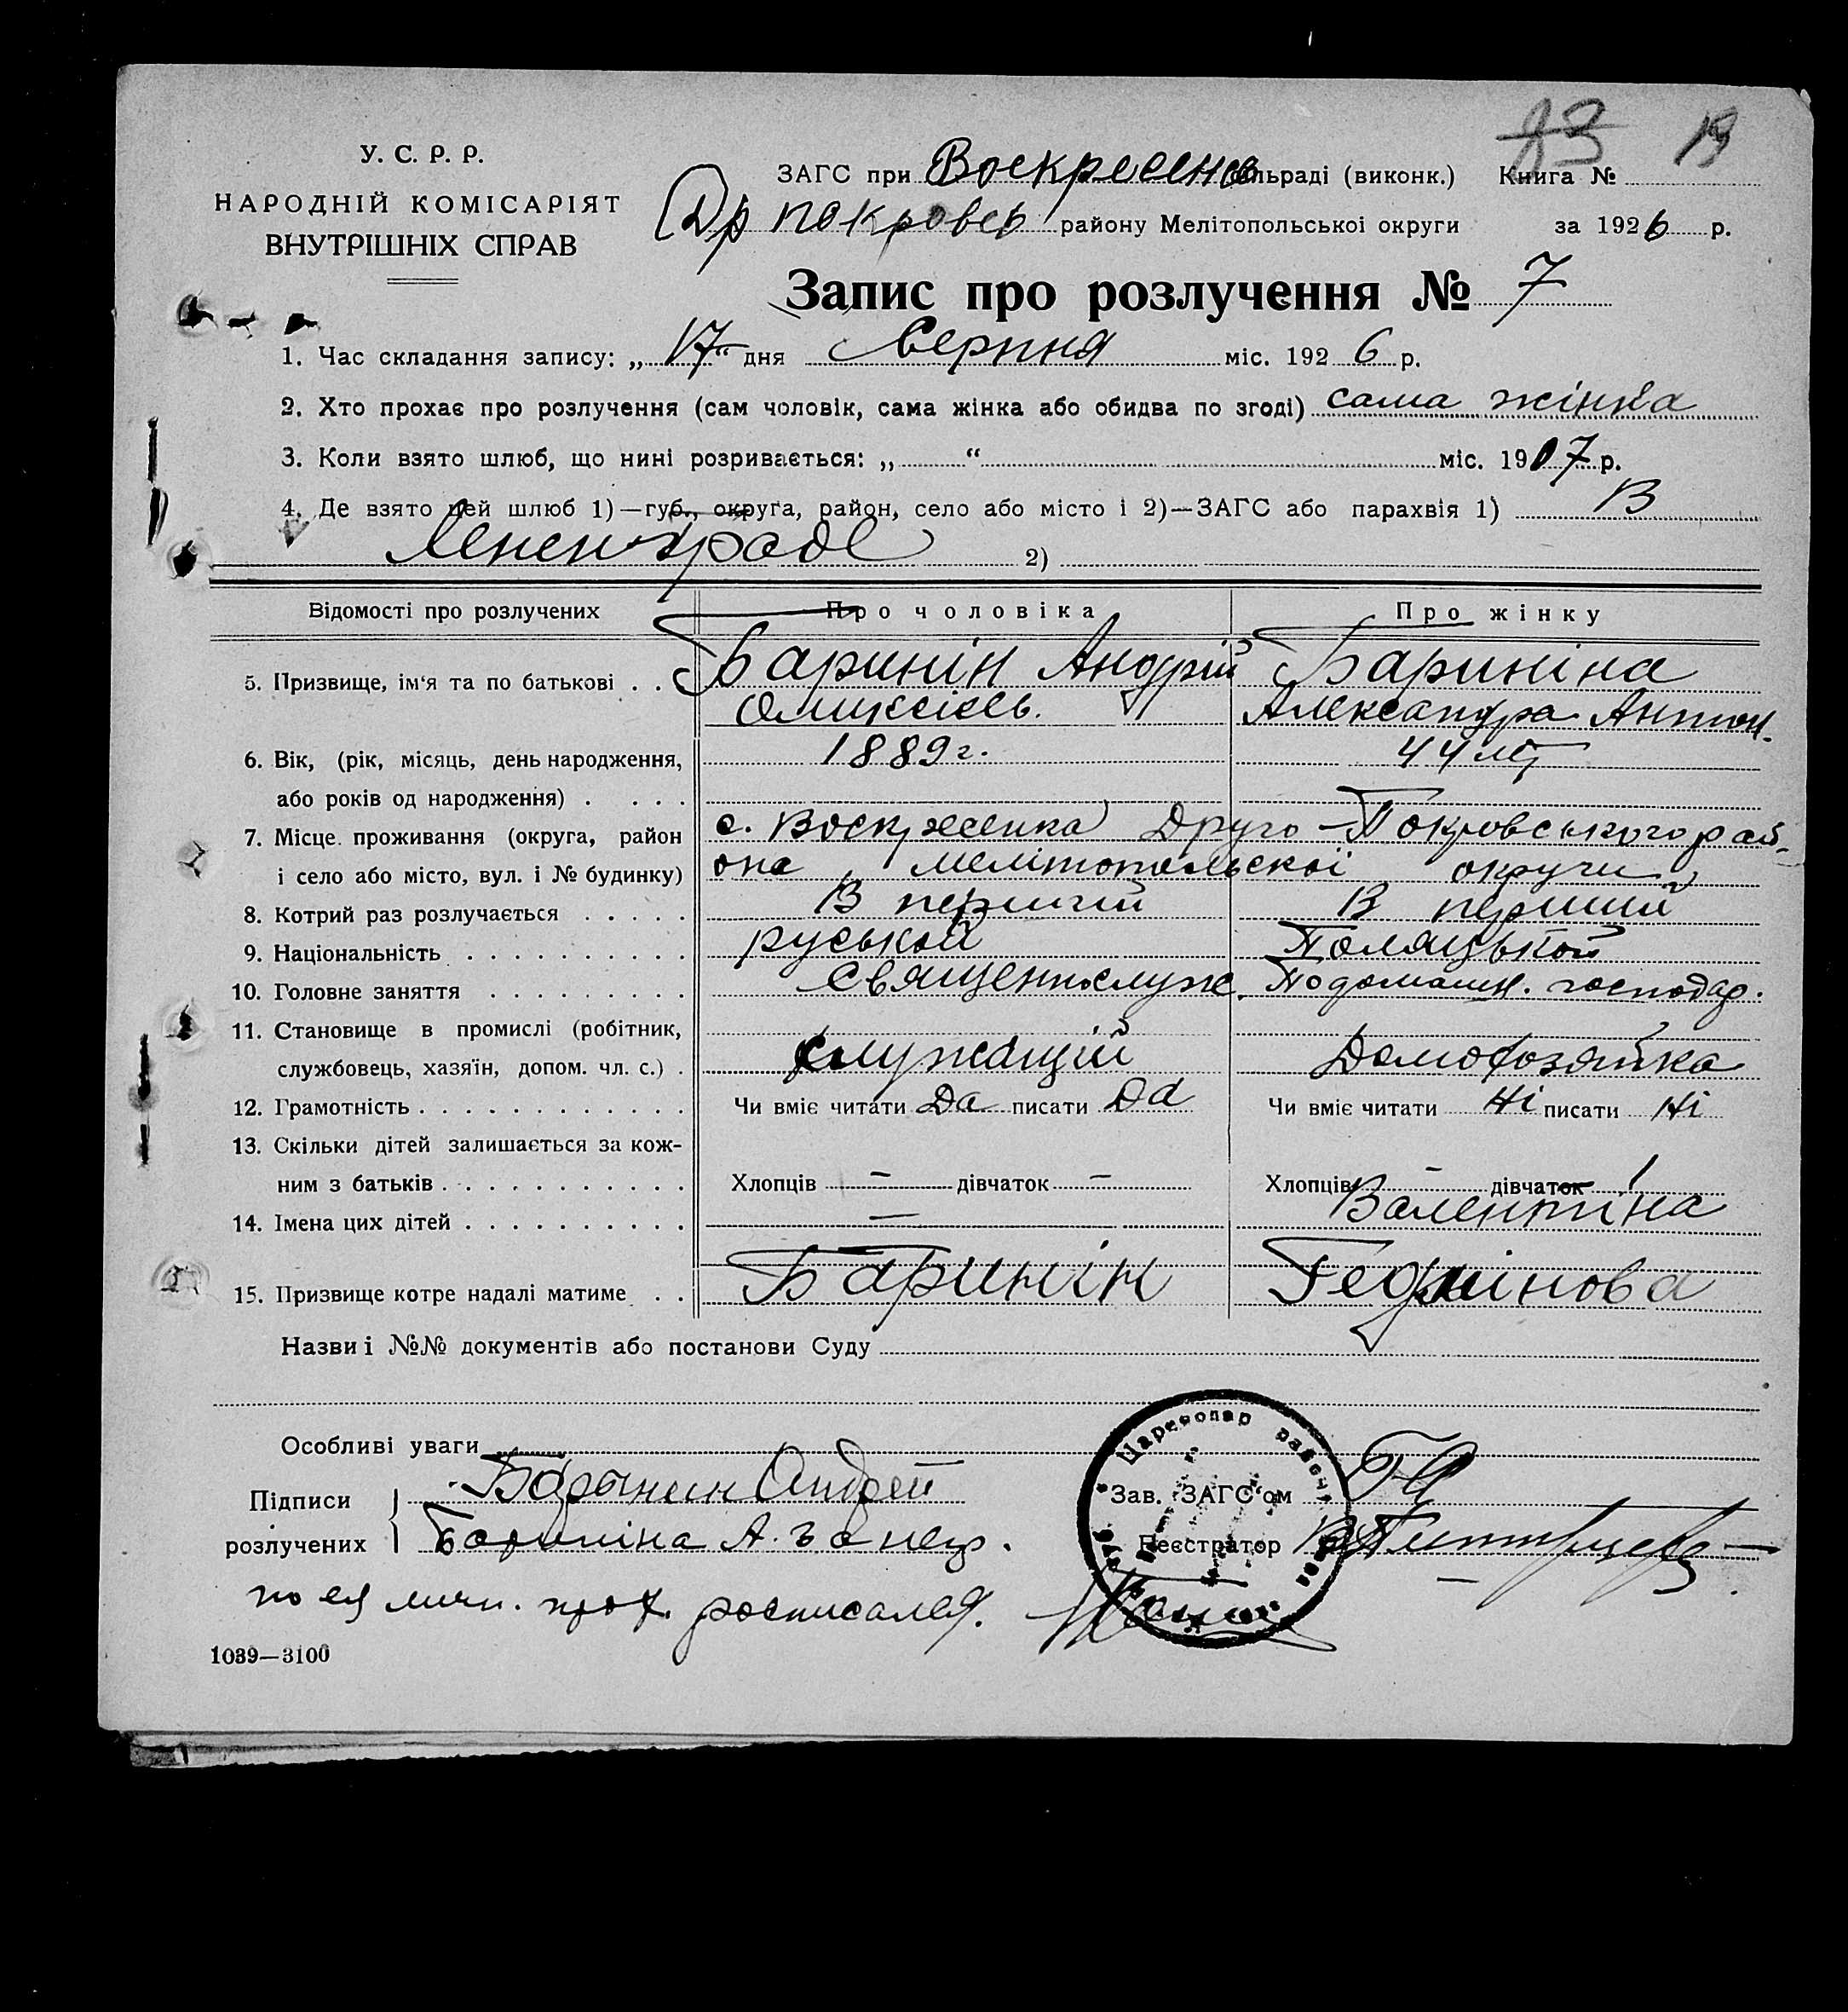 83 19
У. С. Р. Р.
НАРОДНІЙ КОМІСАРІЯТ
ВНУТРІШНІХ СПРАВ
ЗАГС при Воскресенсь сільраді (виконк.) Книга №
Др покровсь району Мелітопольської округи за 1926 р.
Запис про розлучення № 7
1. Час складання запису: „17“ дня Серпня міс. 1926 р.
2. Хто прохає про розлучення (сам чоловік, сама жінка або обидва по згоді) сама жінка
3. Коли взято шлюб, що нині розривається: „ “ міс. 1907 р.
4. Де взято цей шлюб 1)—губ., округа, район, село або місто і 2)—ЗАГС або парахвія 1) В
Ленинграде 2)
Відомості про розлучених Про чоловіка Про жінку
5. Призвище, ім‘я та по батькові . . Баринін Андрій Бариніна
Оликсієв. Александра Антон.
6. Вік, (рік, місяць, день народження, 1889 г. 44 літ
або років од народження) . . . .
7. Місце проживання (округа, район с. Воскресенка Друго-Покровського рай-
і село або місто, вул. і № будинку) она, мелітопольскої округи
8. Котрий раз розлучається . . . . . В перший В перший
9. Національність . . . . . . . . . . руськой Поляцькой
10. Головне заняття . . . . . . . . . Священнослуж. По домашн. господар.
11. Становище в промислі (робітник,
службовець, хазяїн, допом. чл. с.) . служащій Домохозяйка
12. Грамотність . . . . . . . . . . . . Чи вміє читати Да писати Да Чи вміє читати Ні писати Ні
13. Скільки дітей залишається за кож-
ним з батьків . . . . . . . . . . . Хлопців — дівчаток — Хлопців — дівчаток 1
14. Імена цих дітей . . . . . . . . . . — Валентіна
15. Призвище котре надалі матиме . . Баринін Гедмінова
Назви і №№ документів або постанови Суду
Особливі уваги
Підписи Барынин Андрей Зав. ЗАГС‘ом
розлучених Бариніна А. Реєстратор
по ея личн. прос. росписался.
1039—3100